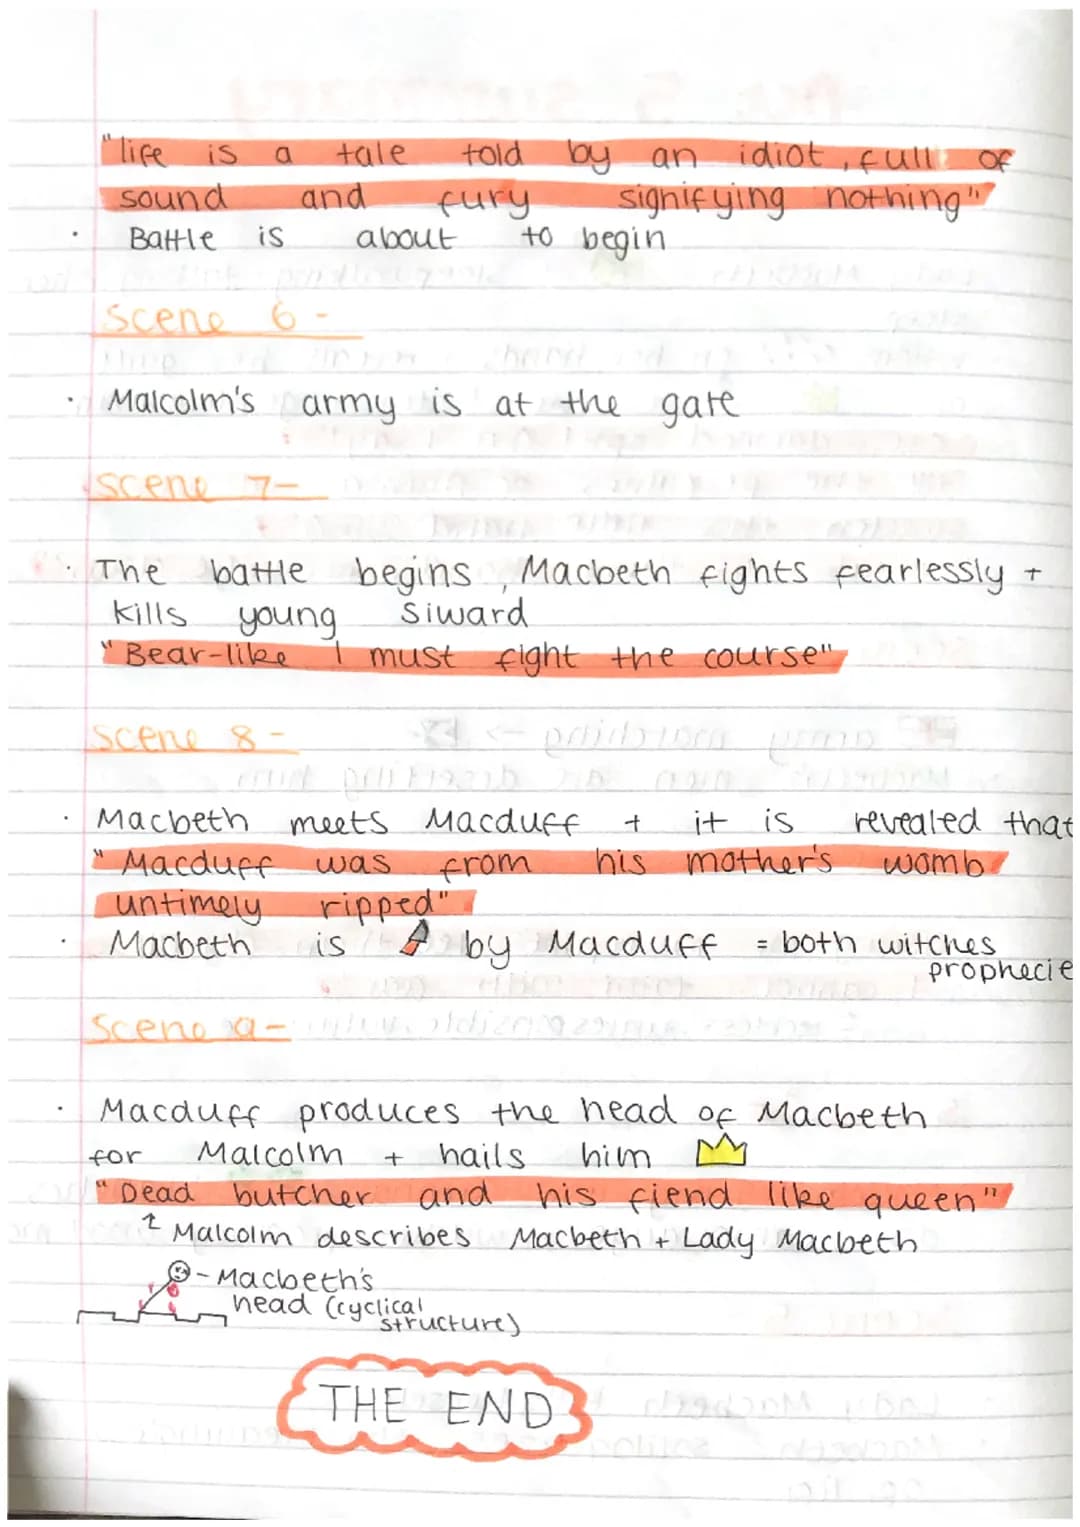 "life is a tale told by an idiot, full of
sound and fury signifying nothing"
· Battle is about to begin
Scene 6 -
· Malcolm's army is at the gate
Scene 7-
· The battle begins, Macbeth fights fearlessly +
kills young Siward
"Bear-like I must fight the course"
Scene 8 -
· Macbeth meets Macduff + it is revealed that
"Macduff was from his mother's womb
untimely ripped"
· Macbeth is by Macduff = both witches
prophecie
Scene 9-
· Macduff produces the head of Macbeth
for Malcolm + hails him
"Dead butcher and his fiend like queen"
↑ Malcolm describes Macbeth + Lady Macbeth
- Macbeth's
head (cyclical
structure)
THE END